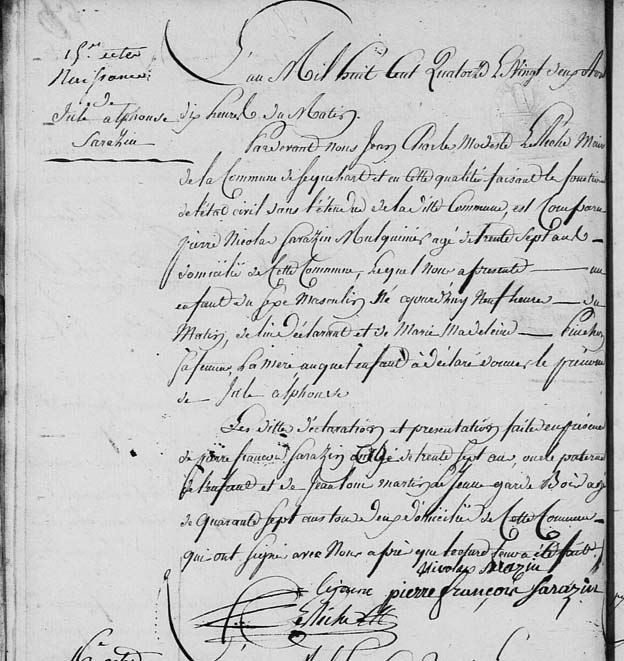 15me acte
Naissance
de
Jule alphonse
Sarazin
L'an Mil huit Cent Quatorze Le Vingt deux
dix heures du Matin,
Pardevant nous Jean Charle Modeste Maire
de la Commune de sequehart et en Cette qualité faisant le fonction
de l'état civil dans l'étendue de la ditte Commune, est Comparu
pierre Nicolas Sarazin Mulquinier agé de trente Sept ans
domicilié de Cette Commune, Lequel Nous a presenté un
enfant du sexe Masculin Né aujourd'huy Neuf heure du
Matin, de lui déclarant et de Marie Madeleine
sa femme, La mere auquel enfant a déclaré donner le prénom
de Jule alphonse
Les ditte déclaration et presentation faite en présence
de pierre françois Sarazin agé de trente sept ans, oncle paternel
de l'enfant et de martin le jeune garde de bois agé
de Quarante Sept ans tous deux domicilié de Cette Commune
qui ont signé avec Nous après que lecture leur a été fait
Nicolas Sarazin
Lejeune pierre françois Sarazin